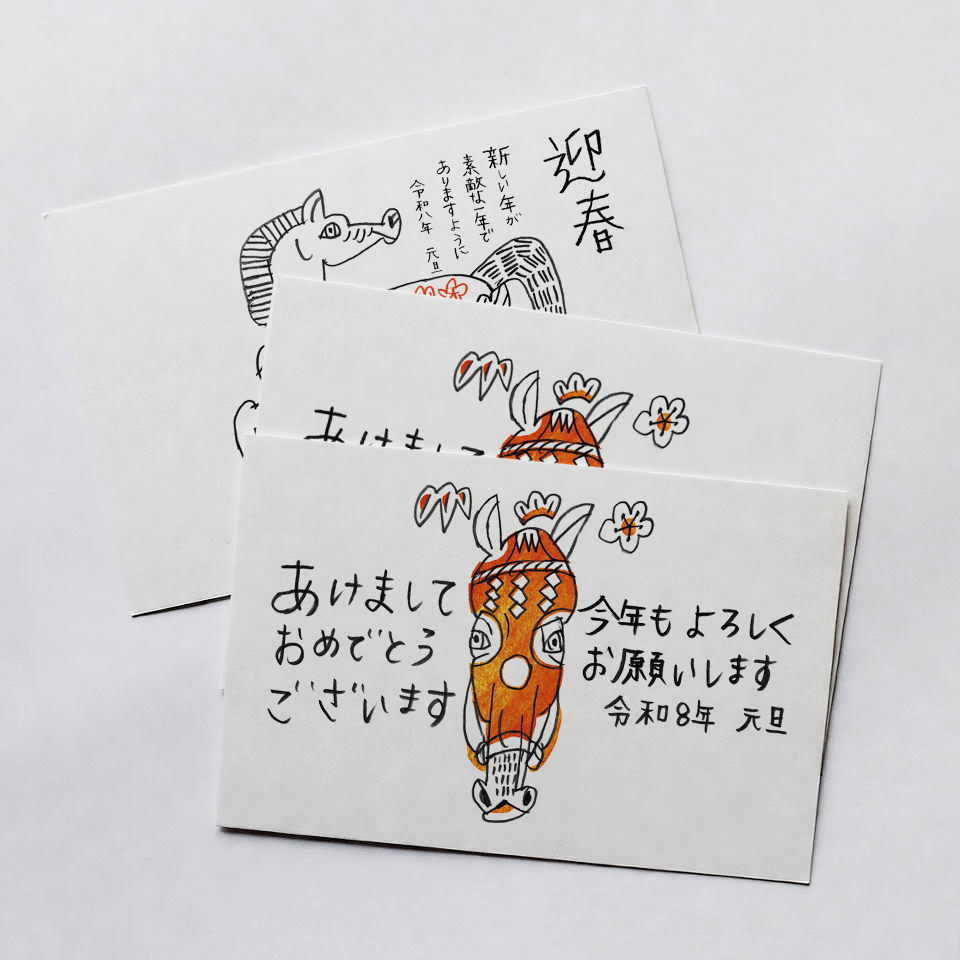 迎春
新しい年が
素敵な一年で
ありますように
令和八年 元旦
あけまして
あけまして
おめでとう
ございます
今年もよろしく
お願いします
令和8年 元旦